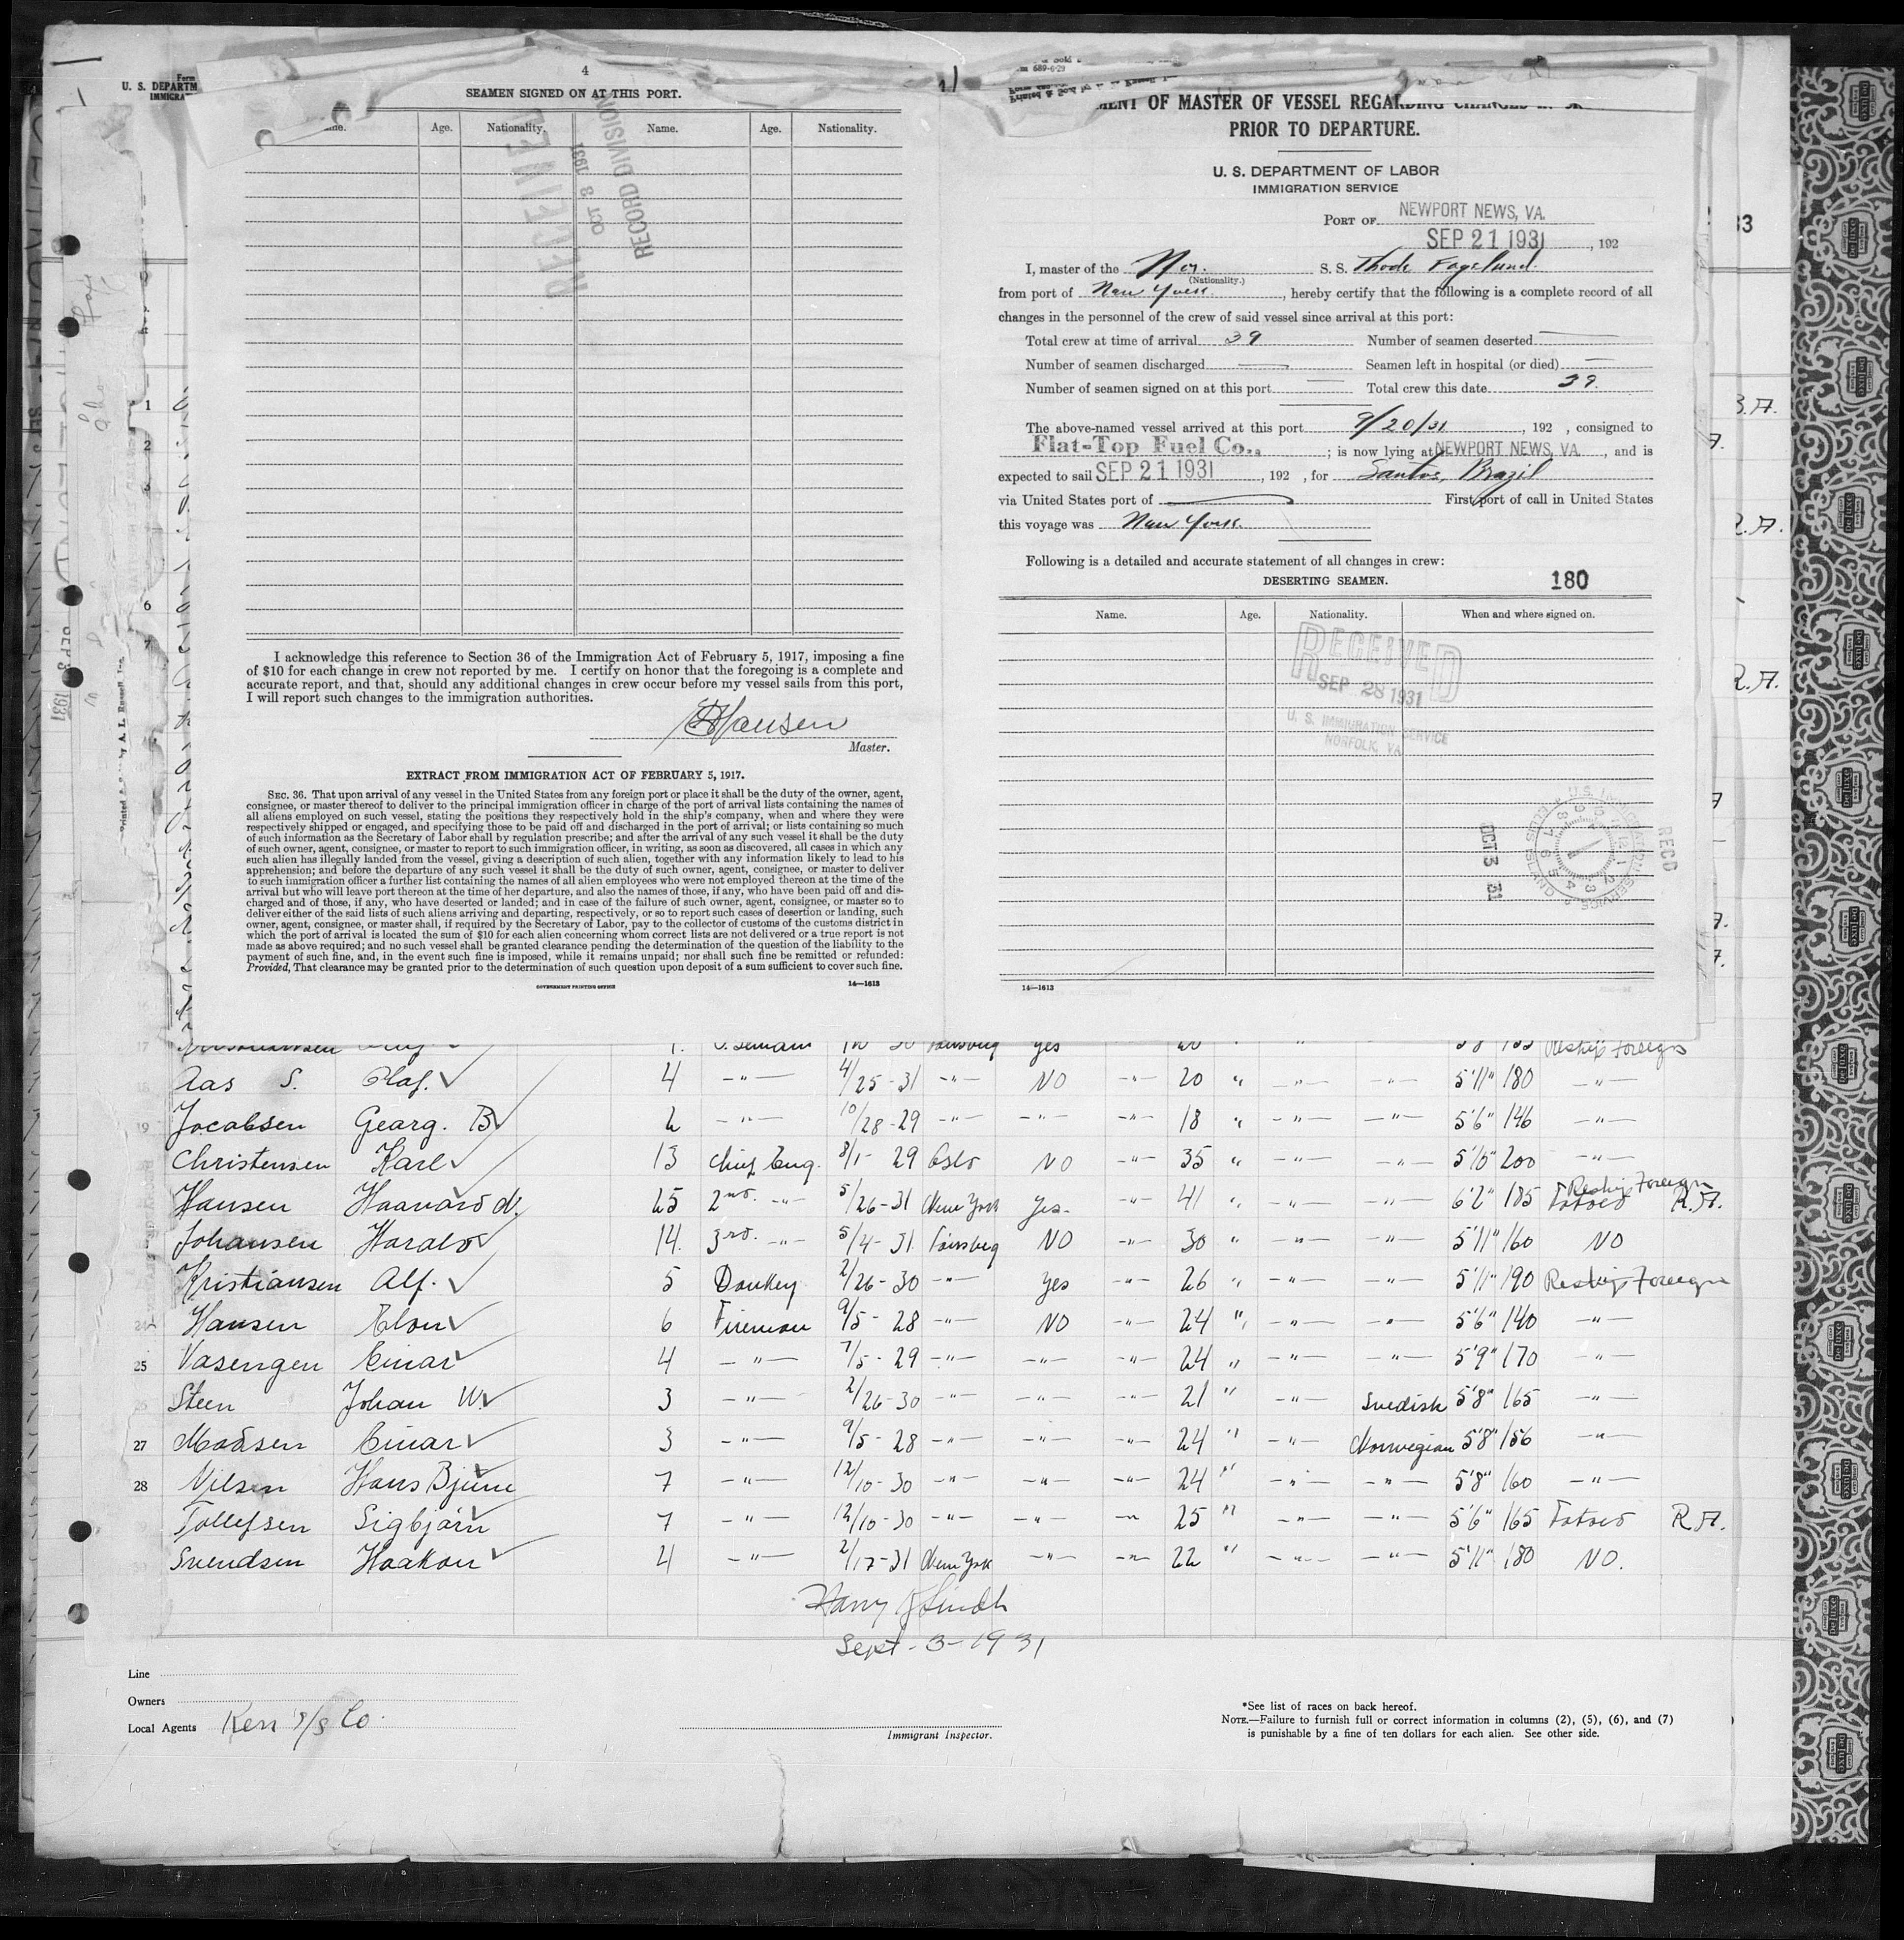 4
SEAMEN SIGNED ON AT THIS PORT.
Age. Nationality. Name. Age. Nationality.
RECEIVED
OCT 3 1931
RECORD DIVISION
I acknowledge this reference to Section 36 of the Immigration Act of February 5, 1917, imposing a fine
of $10 for each change in crew not reported by me. I certify on honor that the foregoing is a complete and
accurate report, and that, should any additional changes in crew occur before my vessel sails from this port,
I will report such changes to the immigration authorities.
Hansen
Master.
EXTRACT FROM IMMIGRATION ACT OF FEBRUARY 5, 1917.
SEC. 36. That upon arrival of any vessel in the United States from any foreign port or place it shall be the duty of the owner, agent,
consignee, or master thereof to deliver to the principal immigration officer in charge of the port of arrival lists containing the names of
all aliens employed on such vessel, stating the positions they respectively hold in the ship's company, when and where they were
respectively shipped or engaged, and specifying those to be paid off and discharged in the port of arrival; or lists containing so much
of such information as the Secretary of Labor shall by regulation prescribe; and after the arrival of any such vessel it shall be the duty
of such owner, agent, consignee, or master to report to such immigration officer, in writing, as soon as discovered, all cases in which any
such alien has illegally landed from the vessel, giving a description of such alien, together with any information likely to lead to his
apprehension; and before the departure of any such vessel it shall be the duty of such owner, agent, consignee, or master to deliver
to such immigration officer a further list containing the names of all alien employees who were not employed thereon at the time of the
arrival but who will leave port thereon at the time of her departure, and also the names of those, if any, who have been paid off and dis-
charged and of those, if any, who have deserted or landed; and in case of the failure of such owner, agent, consignee, or master so to
deliver either of the said lists of such aliens arriving and departing, respectively, or so to report such cases of desertion or landing, such
owner, agent, consignee, or master shall, if required by the Secretary of Labor, pay to the collector of customs of the customs district in
which the port of arrival is located the sum of $10 for each alien concerning whom correct lists are not delivered or a true report is not
made as above required; and no such vessel shall be granted clearance pending the determination of the question of the liability to the
payment of such fine, and, in the event such fine is imposed, while it remains unpaid; nor shall such fine be remitted or refunded:
Provided, That clearance may be granted prior to the determination of such question upon deposit of a sum sufficient to cover such fine.
GOVERNMENT PRINTING OFFICE 14—1613
OF MASTER OF VESSEL REGARDING CHANGES IN
PRIOR TO DEPARTURE.
U. S. DEPARTMENT OF LABOR
IMMIGRATION SERVICE
PORT OF NEWPORT NEWS, VA.
SEP 21 1931, 192
I, master of the Nor. S. S. Thode Fagelund.
(Nationality.)
from port of New York, hereby certify that the following is a complete record of all
changes in the personnel of the crew of said vessel since arrival at this port:
Total crew at time of arrival 39 Number of seamen deserted —
Number of seamen discharged — Seamen left in hospital (or died) —
Number of seamen signed on at this port — Total crew this date 39.
The above-named vessel arrived at this port 9/20/31, 192 , consigned to
Flat-Top Fuel Co., ; is now lying at NEWPORT NEWS, VA., and is
expected to sail SEP 21 1931, 192 , for Santos, Brazil
via United States port of — First port of call in United States
this voyage was New York
Following is a detailed and accurate statement of all changes in crew:
DESERTING SEAMEN. 180
Name. Age. Nationality. When and where signed on.
RECEIVED
SEP 28 1931
U. S. IMMIGRATION SERVICE
NORFOLK, VA
OCT 3 31
RECD
14—1613
yes Reship Foreign
Aas S. Olaf. 4 -"- 4/25-31 -"- NO -"- 20 " -"- -"- 5'11" 180 -"-
19 Jacobsen Georg. B 2 -"- 10/28-29 -"- -"- -"- 18 " -"- -"- 5'6" 146 -"-
Christensen Karl 13 Chief Eng. 8/1-29 Oslo NO -"- 35 " -"- -"- 5'10" 200 -"-
Hansen Haavard d. 25 2nd. -"- 5/26-31 New York Yes- -"- 41 " -"- -"- 6'2" 185 Tatoed Reship Foreign R.A.
Johansen Harald 14. 3rd. -"- 5/4-31 Tönsberg NO -"- 30 " -"- -"- 5'11" 160 NO
Kristiansen Alf. 5 Donkey 2/26-30 -"- Yes -"- 26 " -"- -"- 5'11" 190 Reship Foreign
24 Hansen Elon 6 Fireman 9/5-28 -"- NO -"- 24 " -"- -"- 5'6" 140 -"-
25 Vasengen Einar 4 -"- 7/5-29 -"- -"- -"- 24 " -"- -"- 5'9" 170 -"-
Steen Johan W. 3 -"- 2/26-30 -"- -"- -"- 21 " -"- Swedish 5'8" 165 -"-
27 Madsen Einar 3 -"- 9/5-28 -"- -"- -"- 24 " -"- Norwegian 5'8" 156 -"-
28 Nilsen Hans Bjune 7 -"- 12/10-30 -"- -"- -"- 24 " -"- -"- 5'8" 160 -"-
Tollefsen Sigbjørn 7 -"- 12/10-30 -"- -"- -"- 25 " -"- -"- 5'6" 165 Tatoed R.A.
Svendsen Haakon 4 -"- 2/17-31 New York -"- -"- 22 " -"- -"- 5'11" 180 NO.
Harry J Lindh
Sept-3-1931
Line
Owners
Local Agents Kerr S/S Co.
Immigrant Inspector.
*See list of races on back hereof.
NOTE.—Failure to furnish full or correct information in columns (2), (5), (6), and (7)
is punishable by a fine of ten dollars for each alien. See other side.